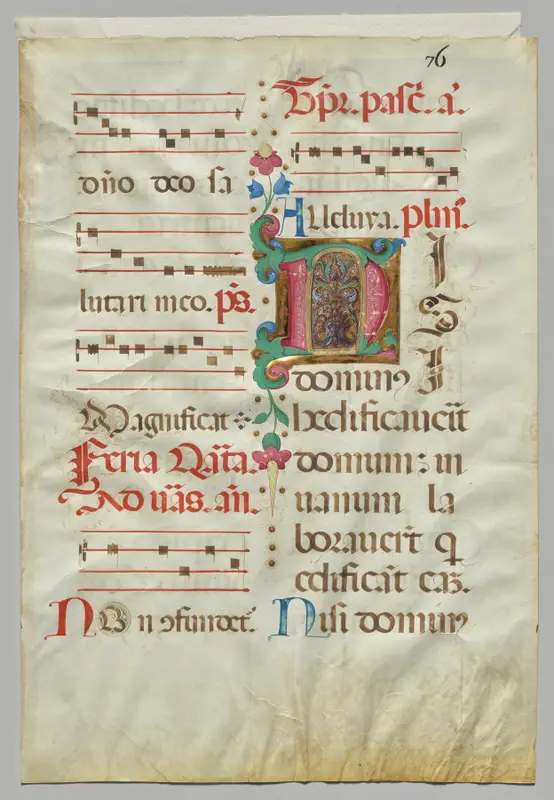 76
dño deo sa
lutari meo. p̃s.
Magnificat
Feria Q̃rta.
Ad ũas. añ.
NO n ɔfundet̃.
Tp̃r. pasc̃. a.
Alleluya. psm̃.
NISI
dominꝰ
hedificauerit
domum: in
uanum la
borauer̃t q
edificãt eã.
Nisi dominꝰ